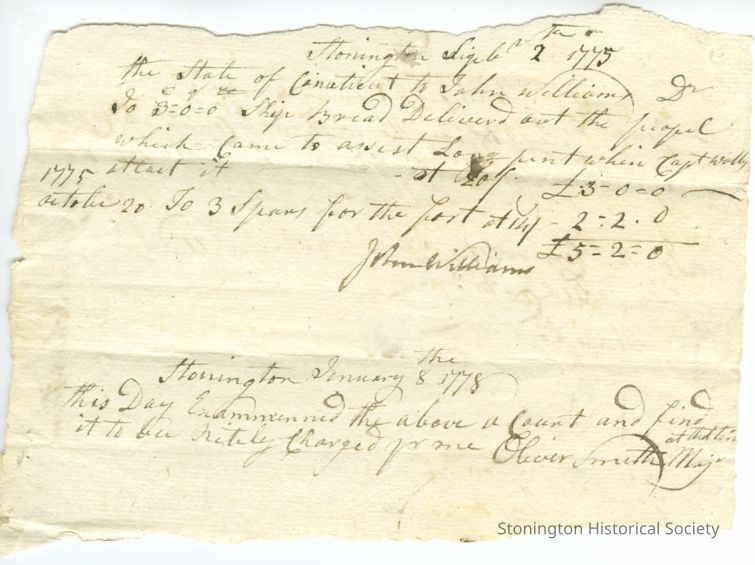 Stonington 2 1775
the State of Coneticut to John Williams Dr
To 3=0=0 Ship Bread Deliverd out the peopel
which Came to assist Long pint when Capt Wolly
1775 attact it - at 20/ £3-0=0
octobe 20 To 3 Spars for the fort at 14/ - 2=2.0
£5=2=0
John Williams
Stonington Jenuary the 8 1778
this Day Exammenned the above a Count and find
it to be Ritely Charged pr me Oliver Smith Majr
at that time
Stonington Historical Society